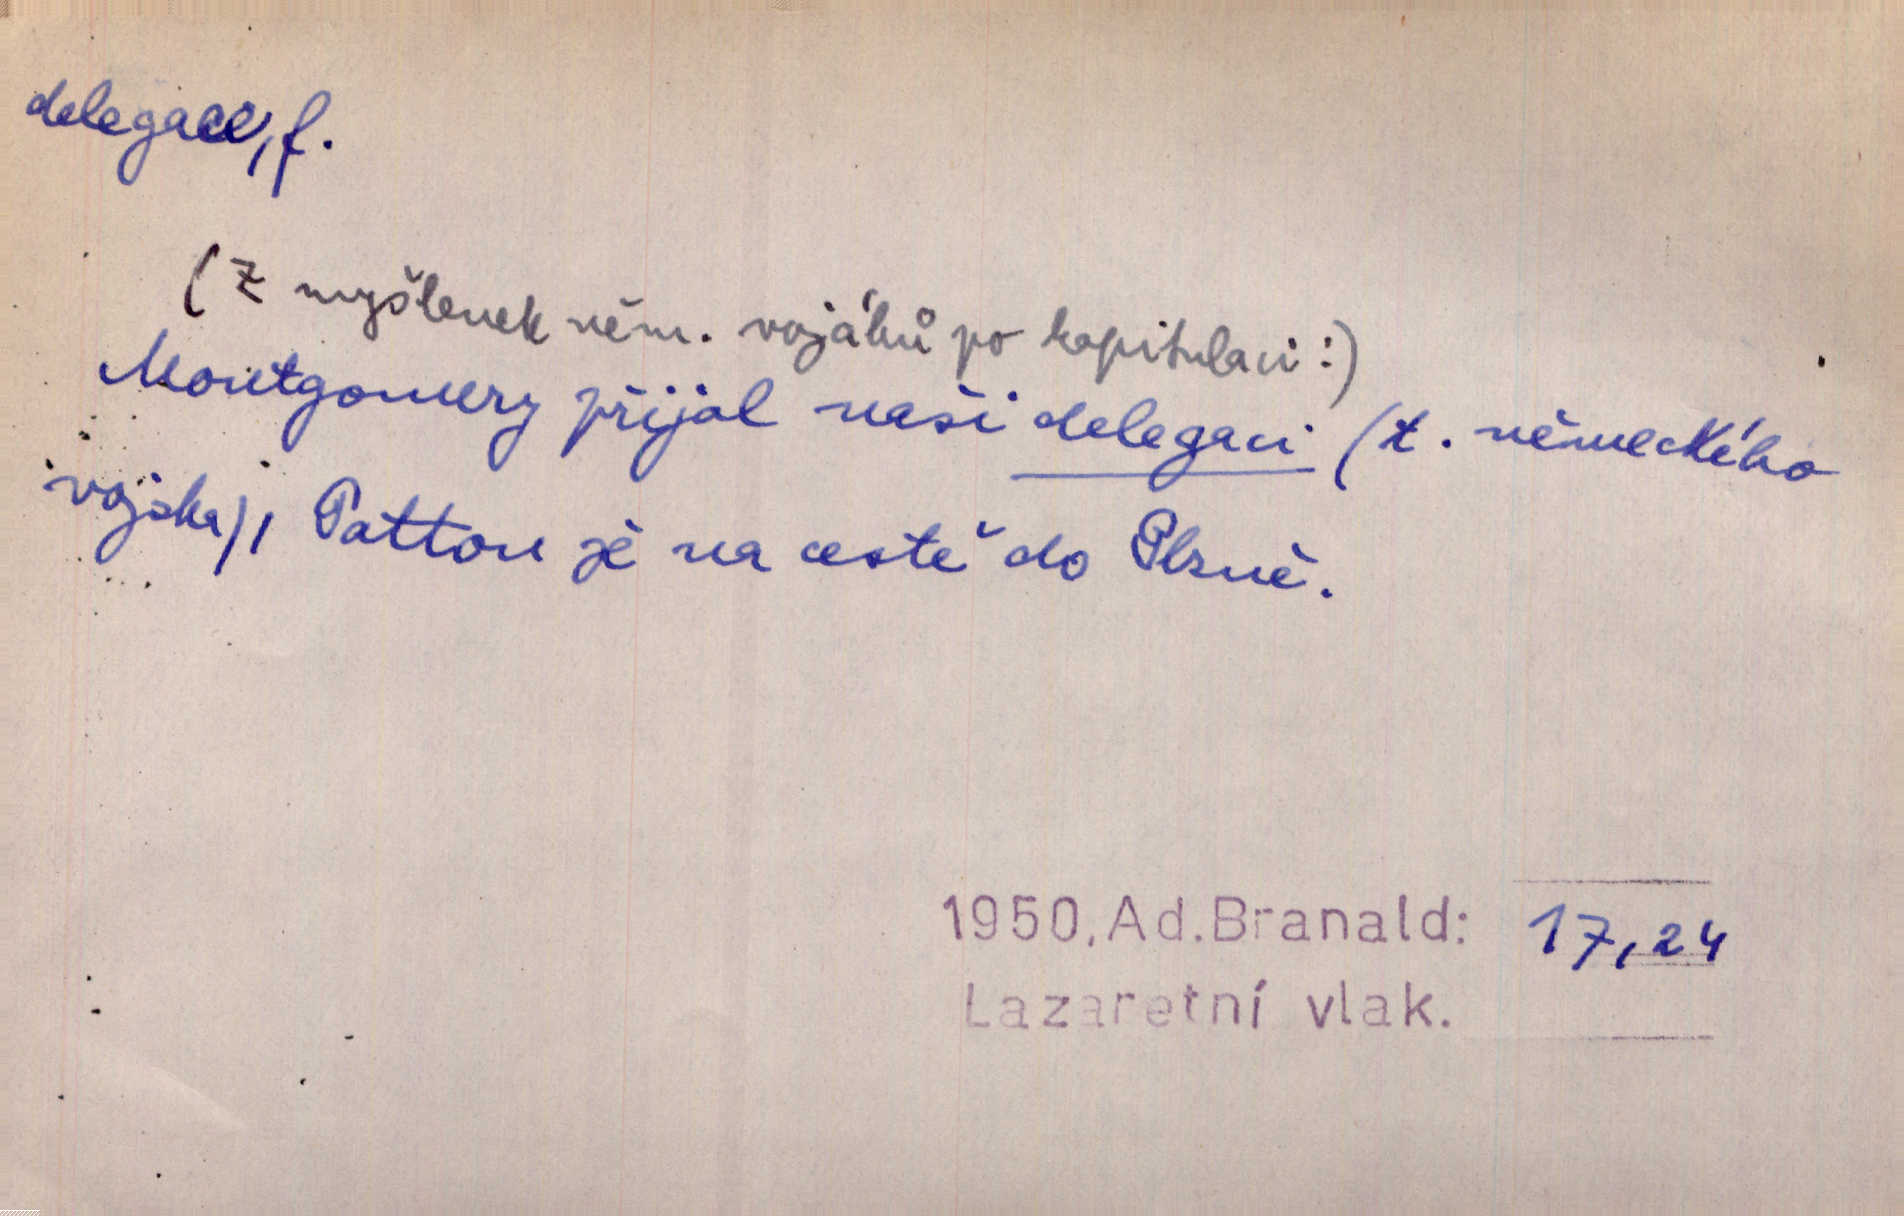 delegace, f.
(Z myšlenek něm. vojáků po kapitulaci:)
Montgomery přijal naši delegaci (t. německého
vojska), Patton je na cestě do Plzně.
1950, Ad. Branald: 17,24
Lazaretní vlak.